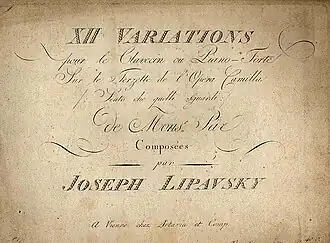 XII VARIATIONS
pour le Clavecin ou Piano-Forte
Sur le Terzette de l'Opera Camilla
Senti che quelli sguardi
de Mons. Par
Composées
par
JOSEPH LIPAVSKY
A Vienne chez Artaria et Comp.